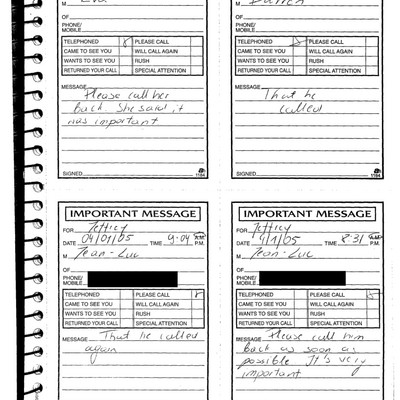 M Eva
OF
PHONE/
MOBILE
TELEPHONED PLEASE CALL
CAME TO SEE YOU WILL CALL AGAIN
WANTS TO SEE YOU RUSH
RETURNED YOUR CALL SPECIAL ATTENTION
MESSAGE Please call her
Back. She said it
was important
SIGNED 1184
M Darren
OF
PHONE/
MOBILE
TELEPHONED PLEASE CALL
CAME TO SEE YOU WILL CALL AGAIN
WANTS TO SEE YOU RUSH
RETURNED YOUR CALL SPECIAL ATTENTION
MESSAGE That he
called
SIGNED 1184
IMPORTANT MESSAGE
FOR Jeffrey
DATE 04/01/05 TIME 9:04 A.M. P.M.
M Jean-Luc
OF
PHONE/
MOBILE
TELEPHONED PLEASE CALL
CAME TO SEE YOU WILL CALL AGAIN
WANTS TO SEE YOU RUSH
RETURNED YOUR CALL SPECIAL ATTENTION
MESSAGE That he called
again
IMPORTANT MESSAGE
FOR Jeffrey
DATE 4/1/05 TIME 8:31 A.M. P.M.
M Jean-Luc
OF
PHONE/
MOBILE
TELEPHONED PLEASE CALL
CAME TO SEE YOU WILL CALL AGAIN
WANTS TO SEE YOU RUSH
RETURNED YOUR CALL SPECIAL ATTENTION
MESSAGE Please call him
Back as soon as
possible It's very
important